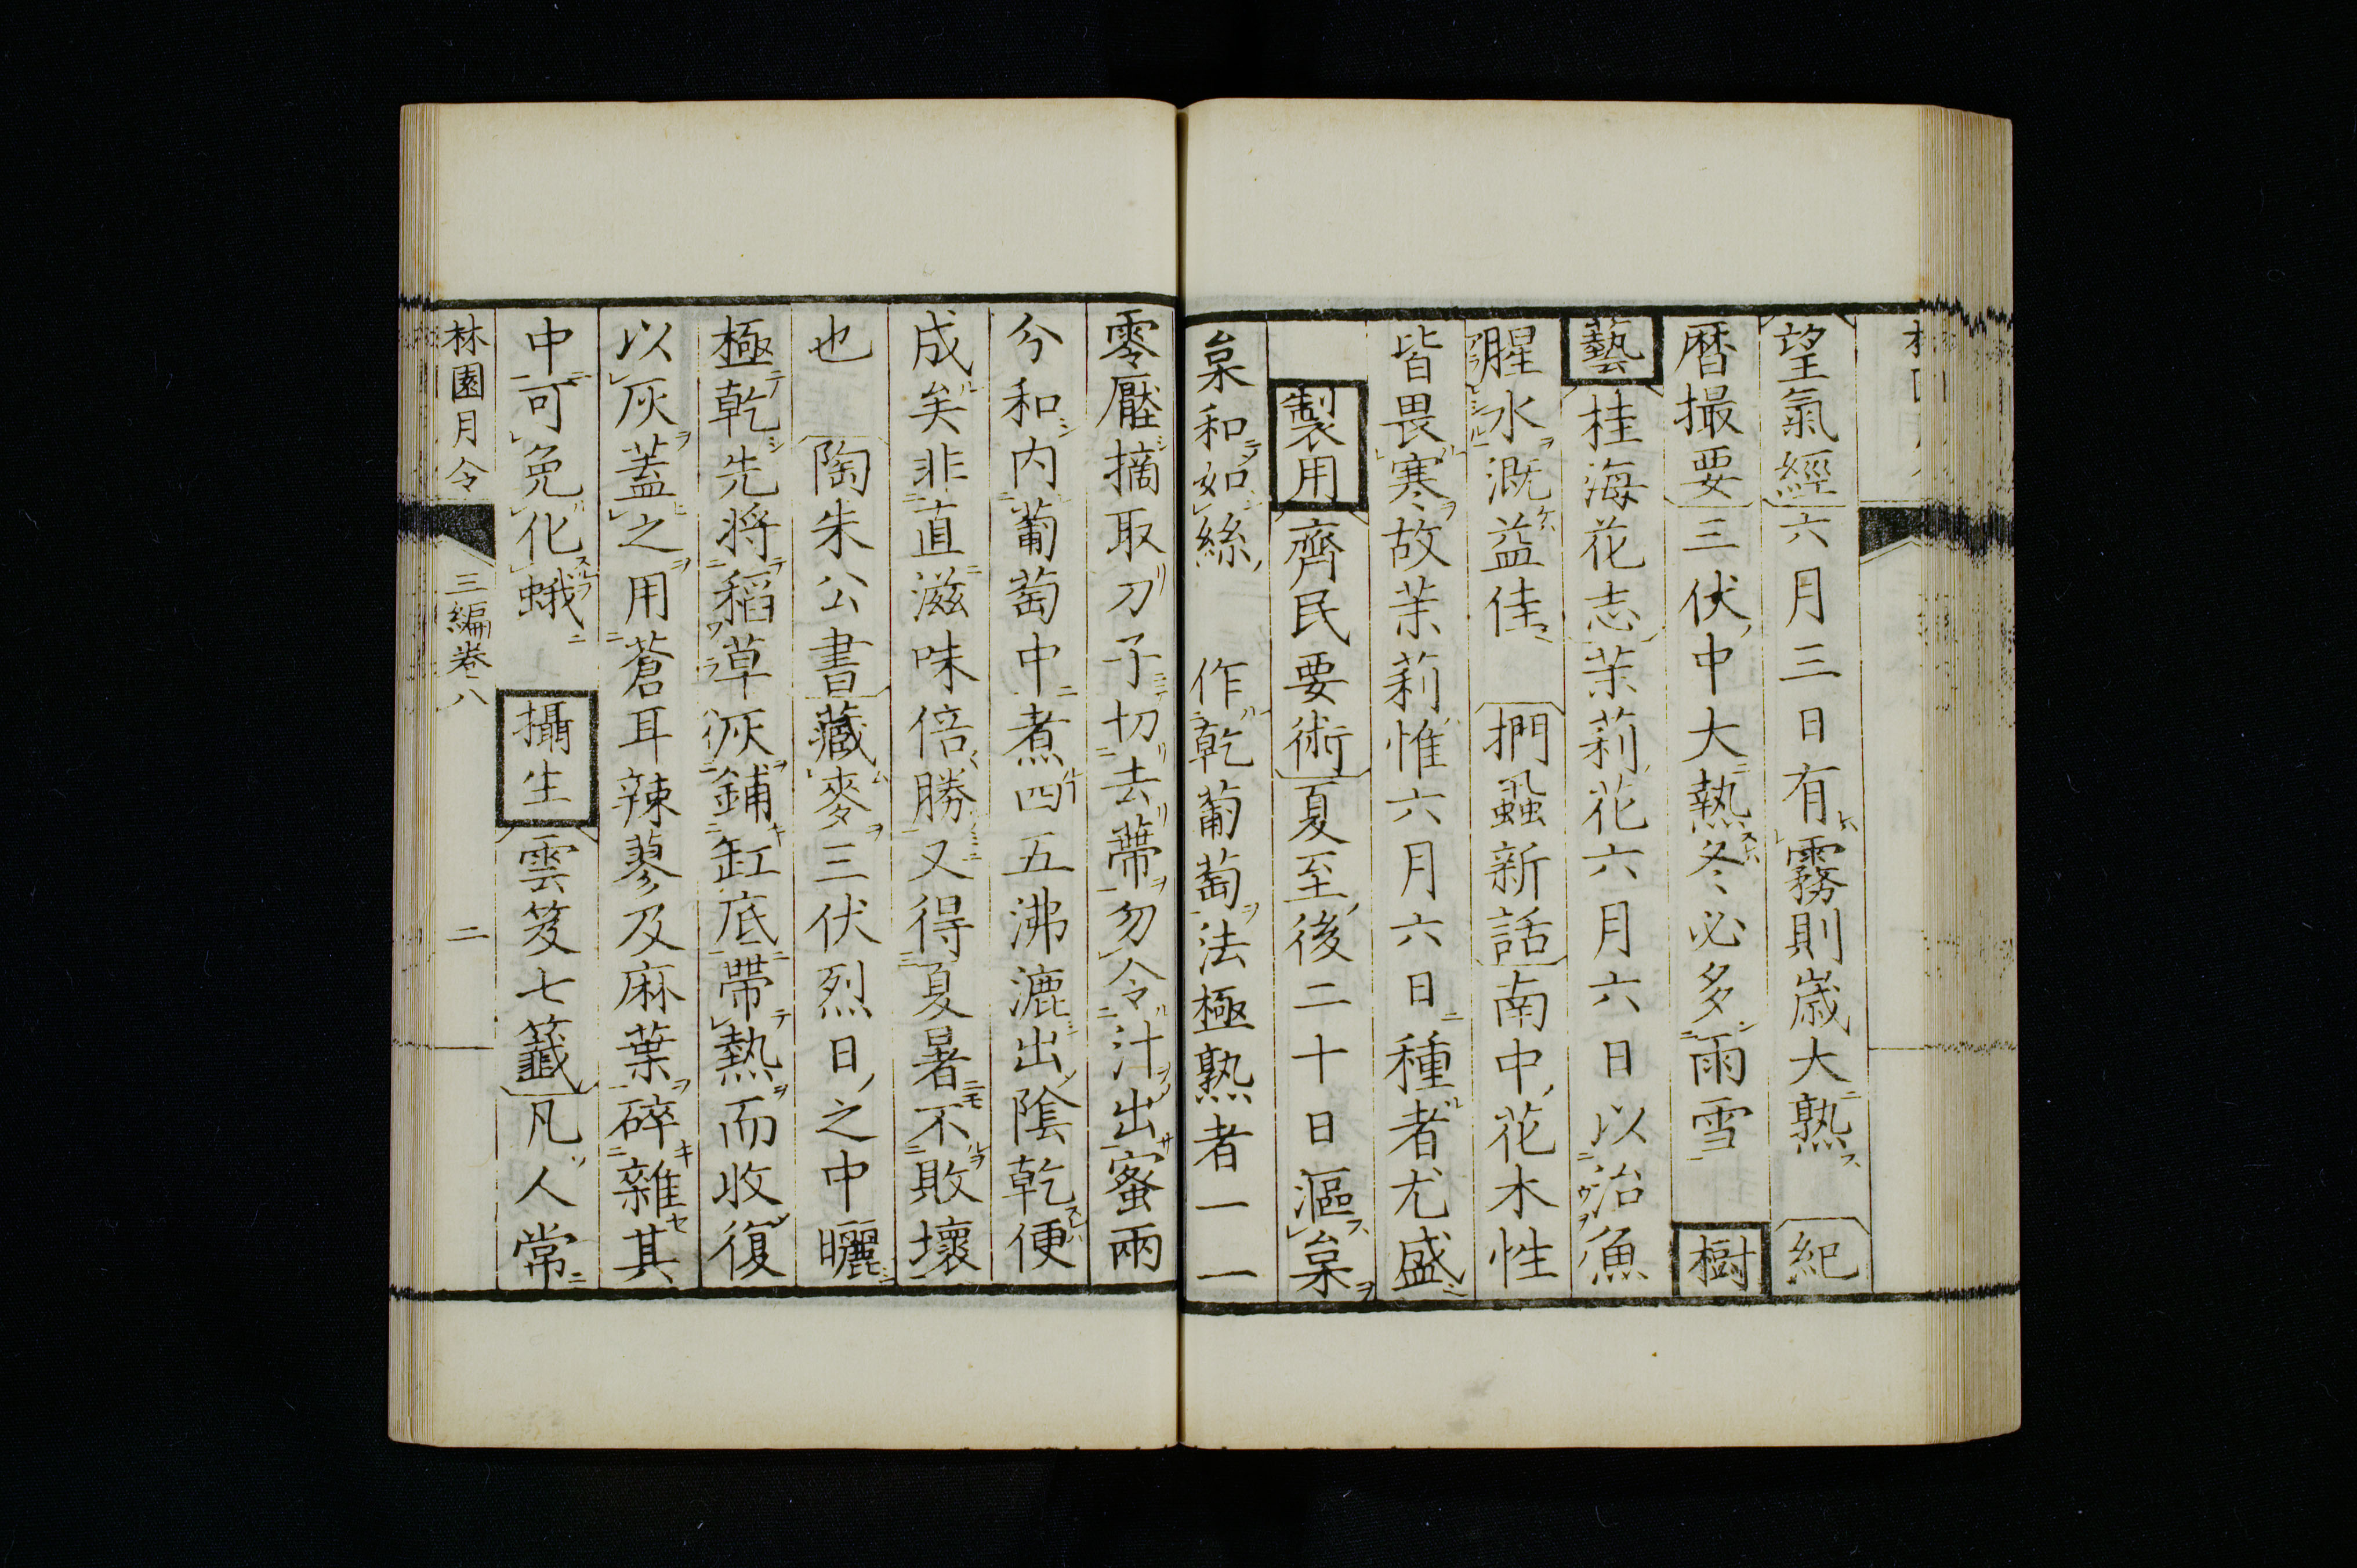 望氣經六月三日有霧則歲大熟　紀
曆撮要三伏中大熱冬必多雨雪　樹
藝　桂海花志茉莉花六月六日以治魚
腥水溉益佳　捫蝨新話南中花木性
皆畏寒故茉莉惟六月六日種者尤盛
製用　齊民要術夏至後二十日漚枲
枲和如絲　作乾葡萄法極熟者一一
零壓摘取刀子切去蔕勿令汁出蜜兩
分和內葡萄中煮四五沸漉出陰乾便
成矣非直滋味倍勝又得夏暑不敗壞
也　陶朱公書藏麥三伏烈日之中曬
極乾先將稻草灰鋪缸底帶熱而收復
以灰蓋之用蒼耳辣蓼及麻葉碎雜其
中可免化蛾　攝生　雲笈七籤凡人常
林園月令　三編卷八　二